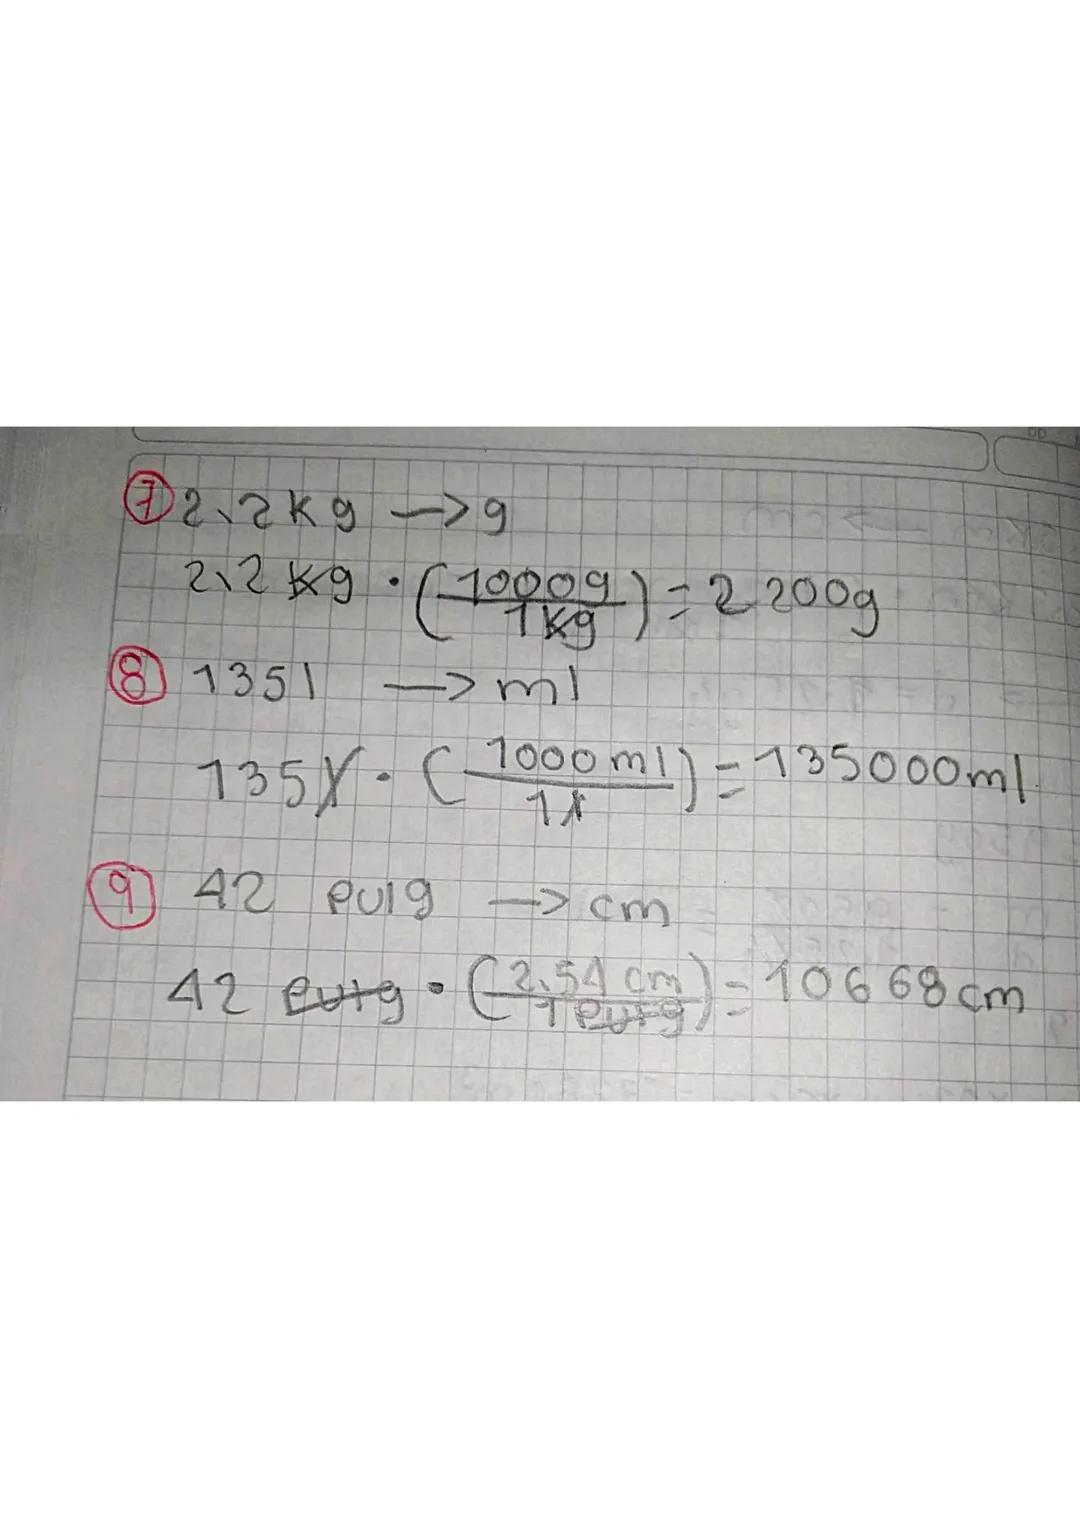 ⑦ 2.2kg → g
2.2 kg · (1000g / 1kg) = 2200g
⑧ 135l → ml
135l · (1000ml / 1l) = 135000ml
⑨ 42 pulg → cm
42 pulg · (2.54 cm / 1 pulg) = 10668cm